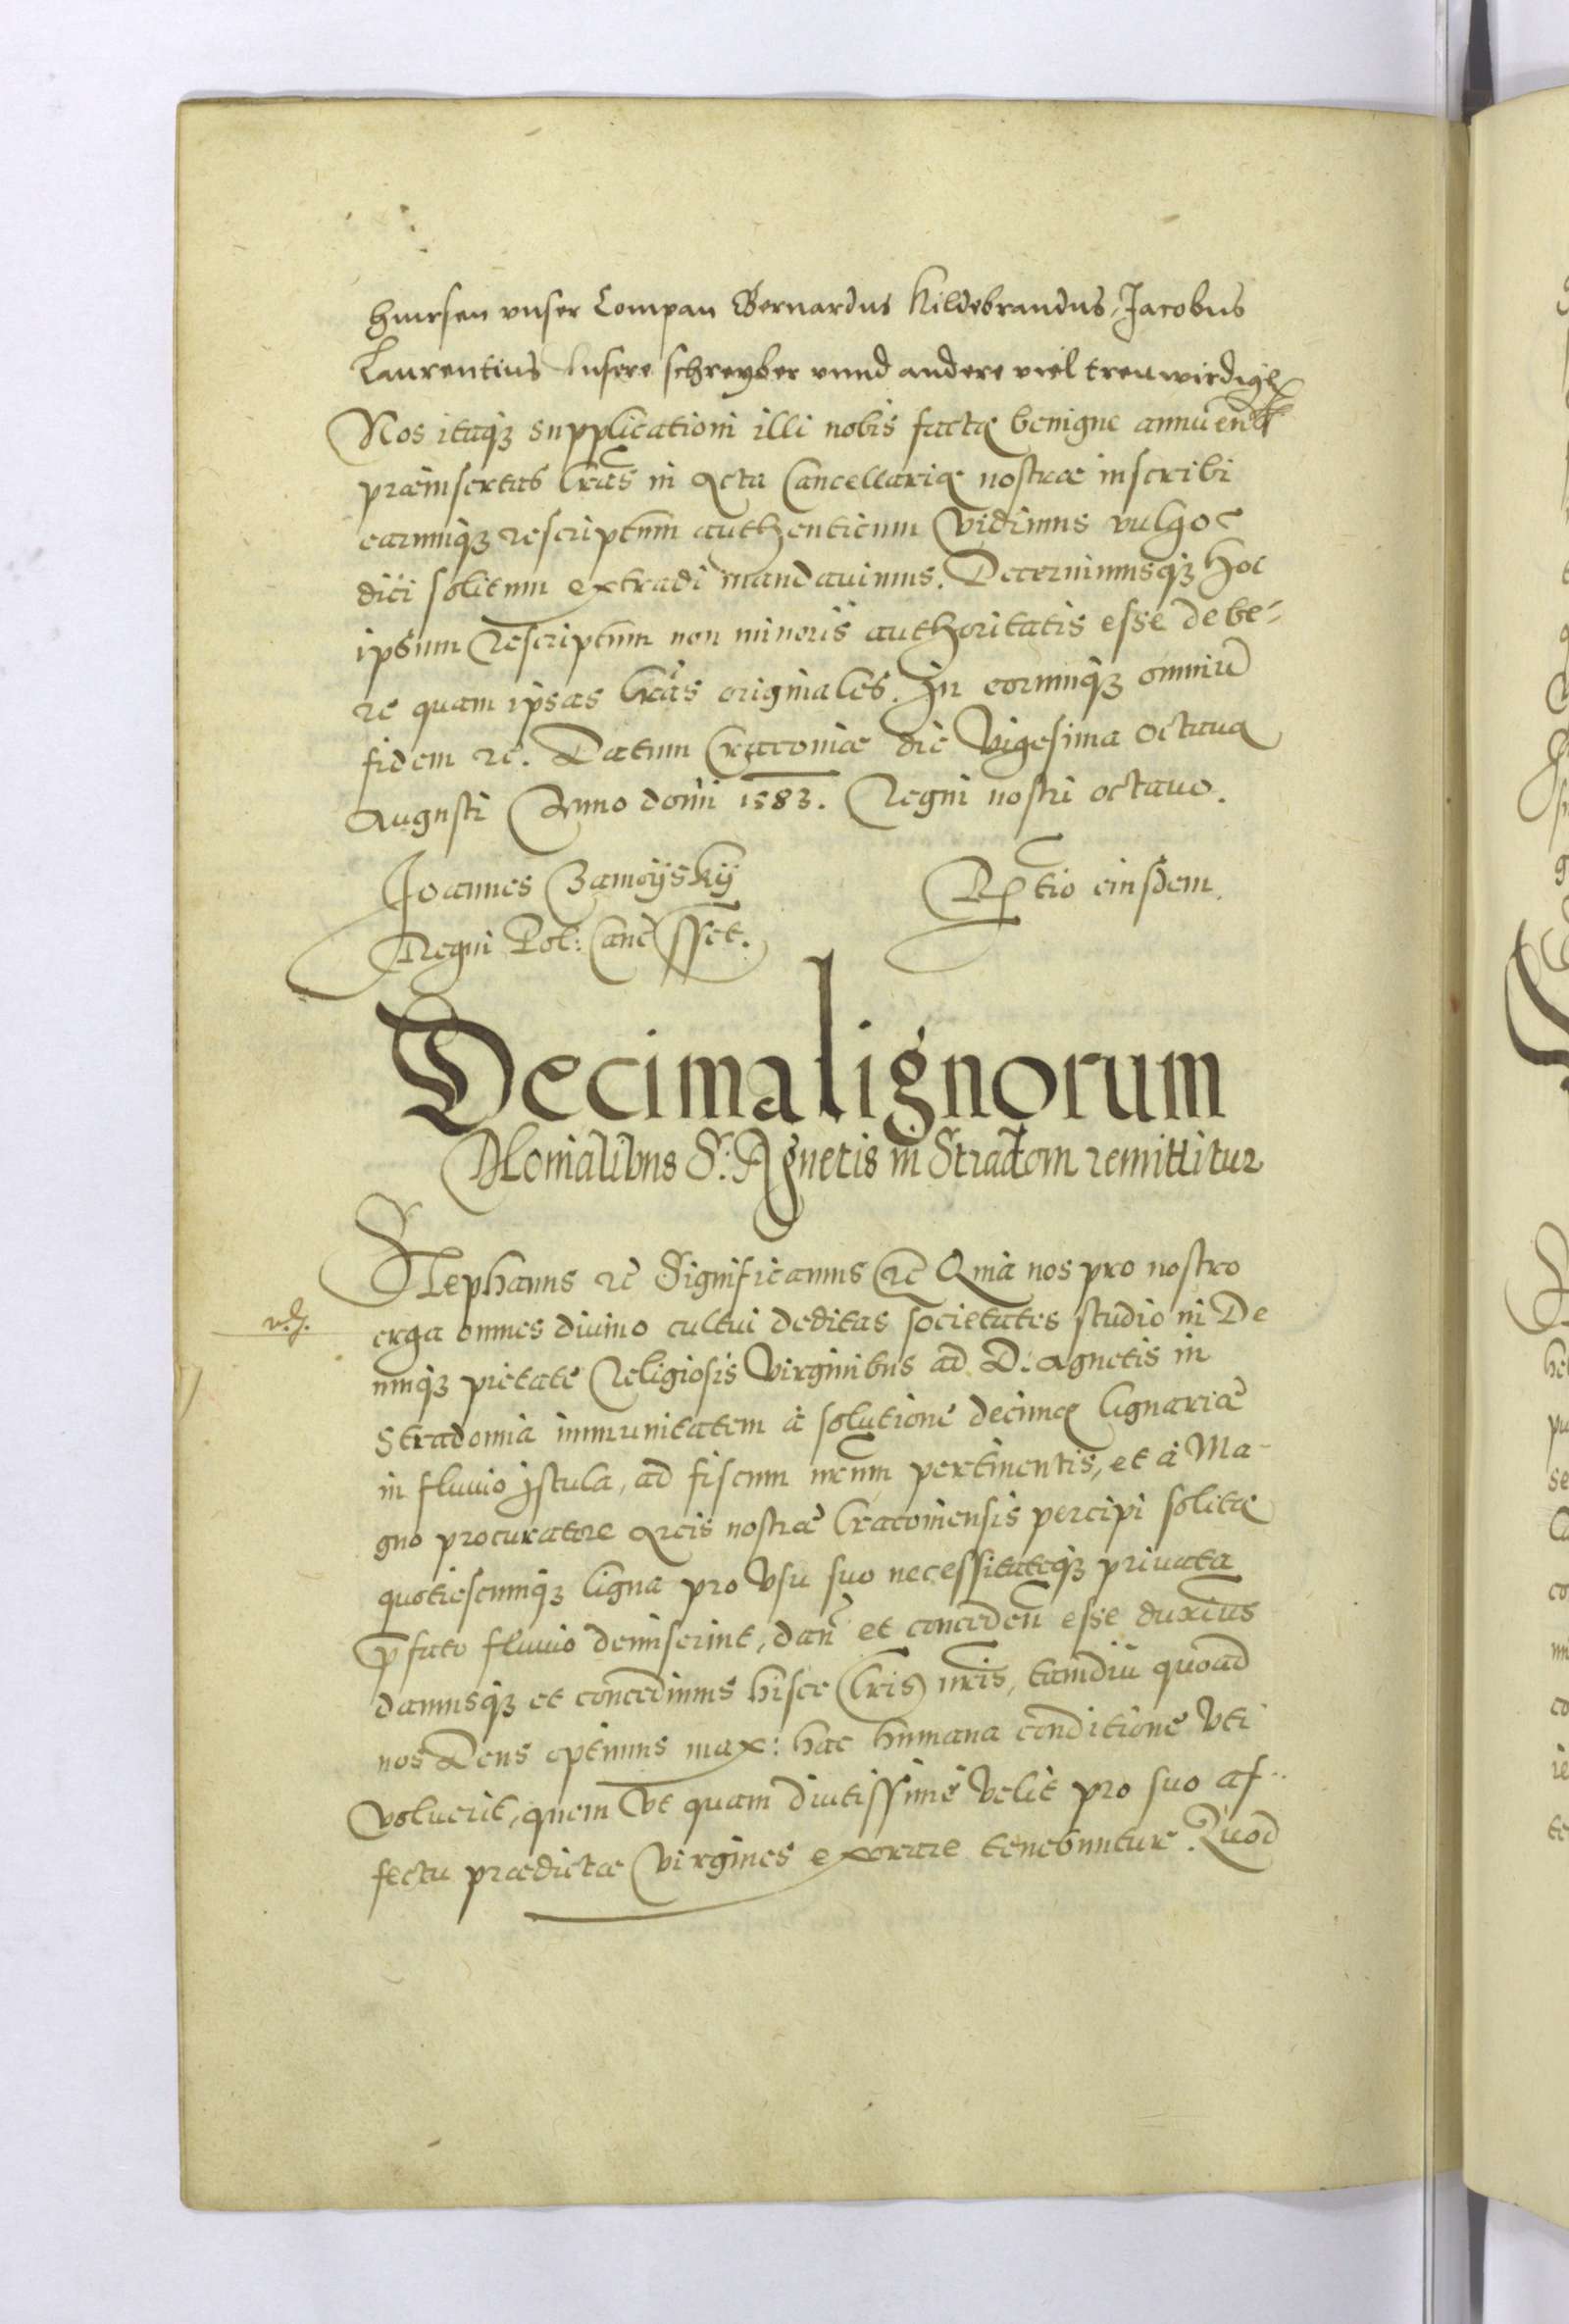 hinrsen vnser Compan Bernardus Hildebrandus, Jacobus
Laurentius Unsere schreyber vnnd andere viel treuwirdige
Nos itaq3 supplicationi illi nobis factę benigne annuen
præinsertas lras in Acta Cancellarię nostræ inscribi
earumq3 rescriptum authenticum Vidimus vulgo
dici solitum extradi mandauimus. Decernimusq3 hoc
ipsum Rescriptum non minoris authoritatis esse debe-
re quam ipsas lras originales. In eorumq3 omniu
fidem rc. Datum Cracouiæ die Vigesima octaua
Augusti Anno domi 1583. Regni nostri octauo.
Joannes Zamoyský
Regni Pol: Canc sst.
Rtio eiusdem.
Decima lignorum
Monialibus S. Agnetis in Stradom remittitur
Stephanus rc Significamus rc Quia nos pro nostro
erga omnes diuino cultui deditas societates studio in De
umq3 pietate Religiosis Virginibus ad D. Agnetis in
Stradomia immunitatem à solutione decimę lignariæ
in fluuio Istula, ad fiscum nrum pertinentis, et à Ma-
gno procuratore Arcis nostræ Cracouiensis percipi solitę
quotiescumq3 ligna pro Vsu suo necessitateq3 priuata
pfato fluuio demiserint, dan et conceden esse duximus
damusq3 et concedimus hisce lris nris, tamdiu quoad
nos Deus optimus max: hac humana conditione Vti
Voluerit, quem Vt quam diutissime Velit pro suo af-
fectu prædictæ Virgines exorare tenebuntur. Quod